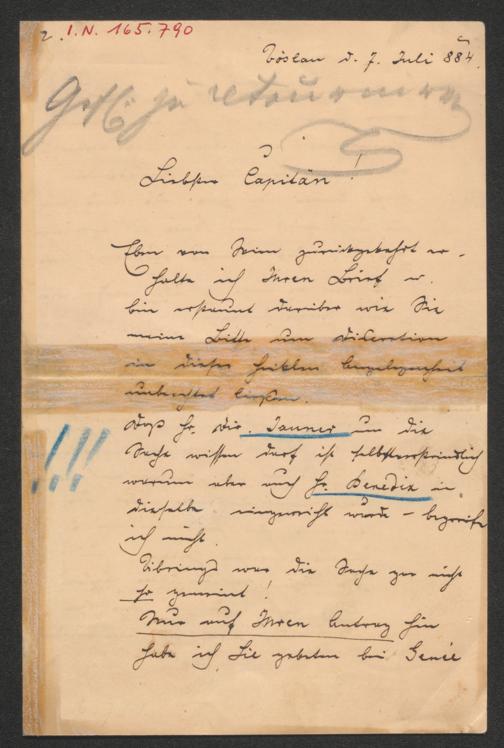 2. I.N. 165.790
Vöslau d. 7. Juli 884.
Gefl. zu retourniren
Liebster Capitän!
Eben von Wien zurückgekehrt er-
halte ich Ihren Brief u.
bin erstaunt darüber wie Sie
meine Bitte um Discretion
in dieser heiklen Angelegenheit
unbeachtet ließen.
Daß Hr. Dir. Jauner um die
Sache wissen darf ist selbstverständlich
warum aber auch Hr. Benedix in
dieselbe eingeweiht wurde – begreife
ich nicht.
!!!
Übrings war die Sache gar nicht
so gemeint!
Nur auf Ihren Antrag hin
habe ich Sie gebeten bei Genée